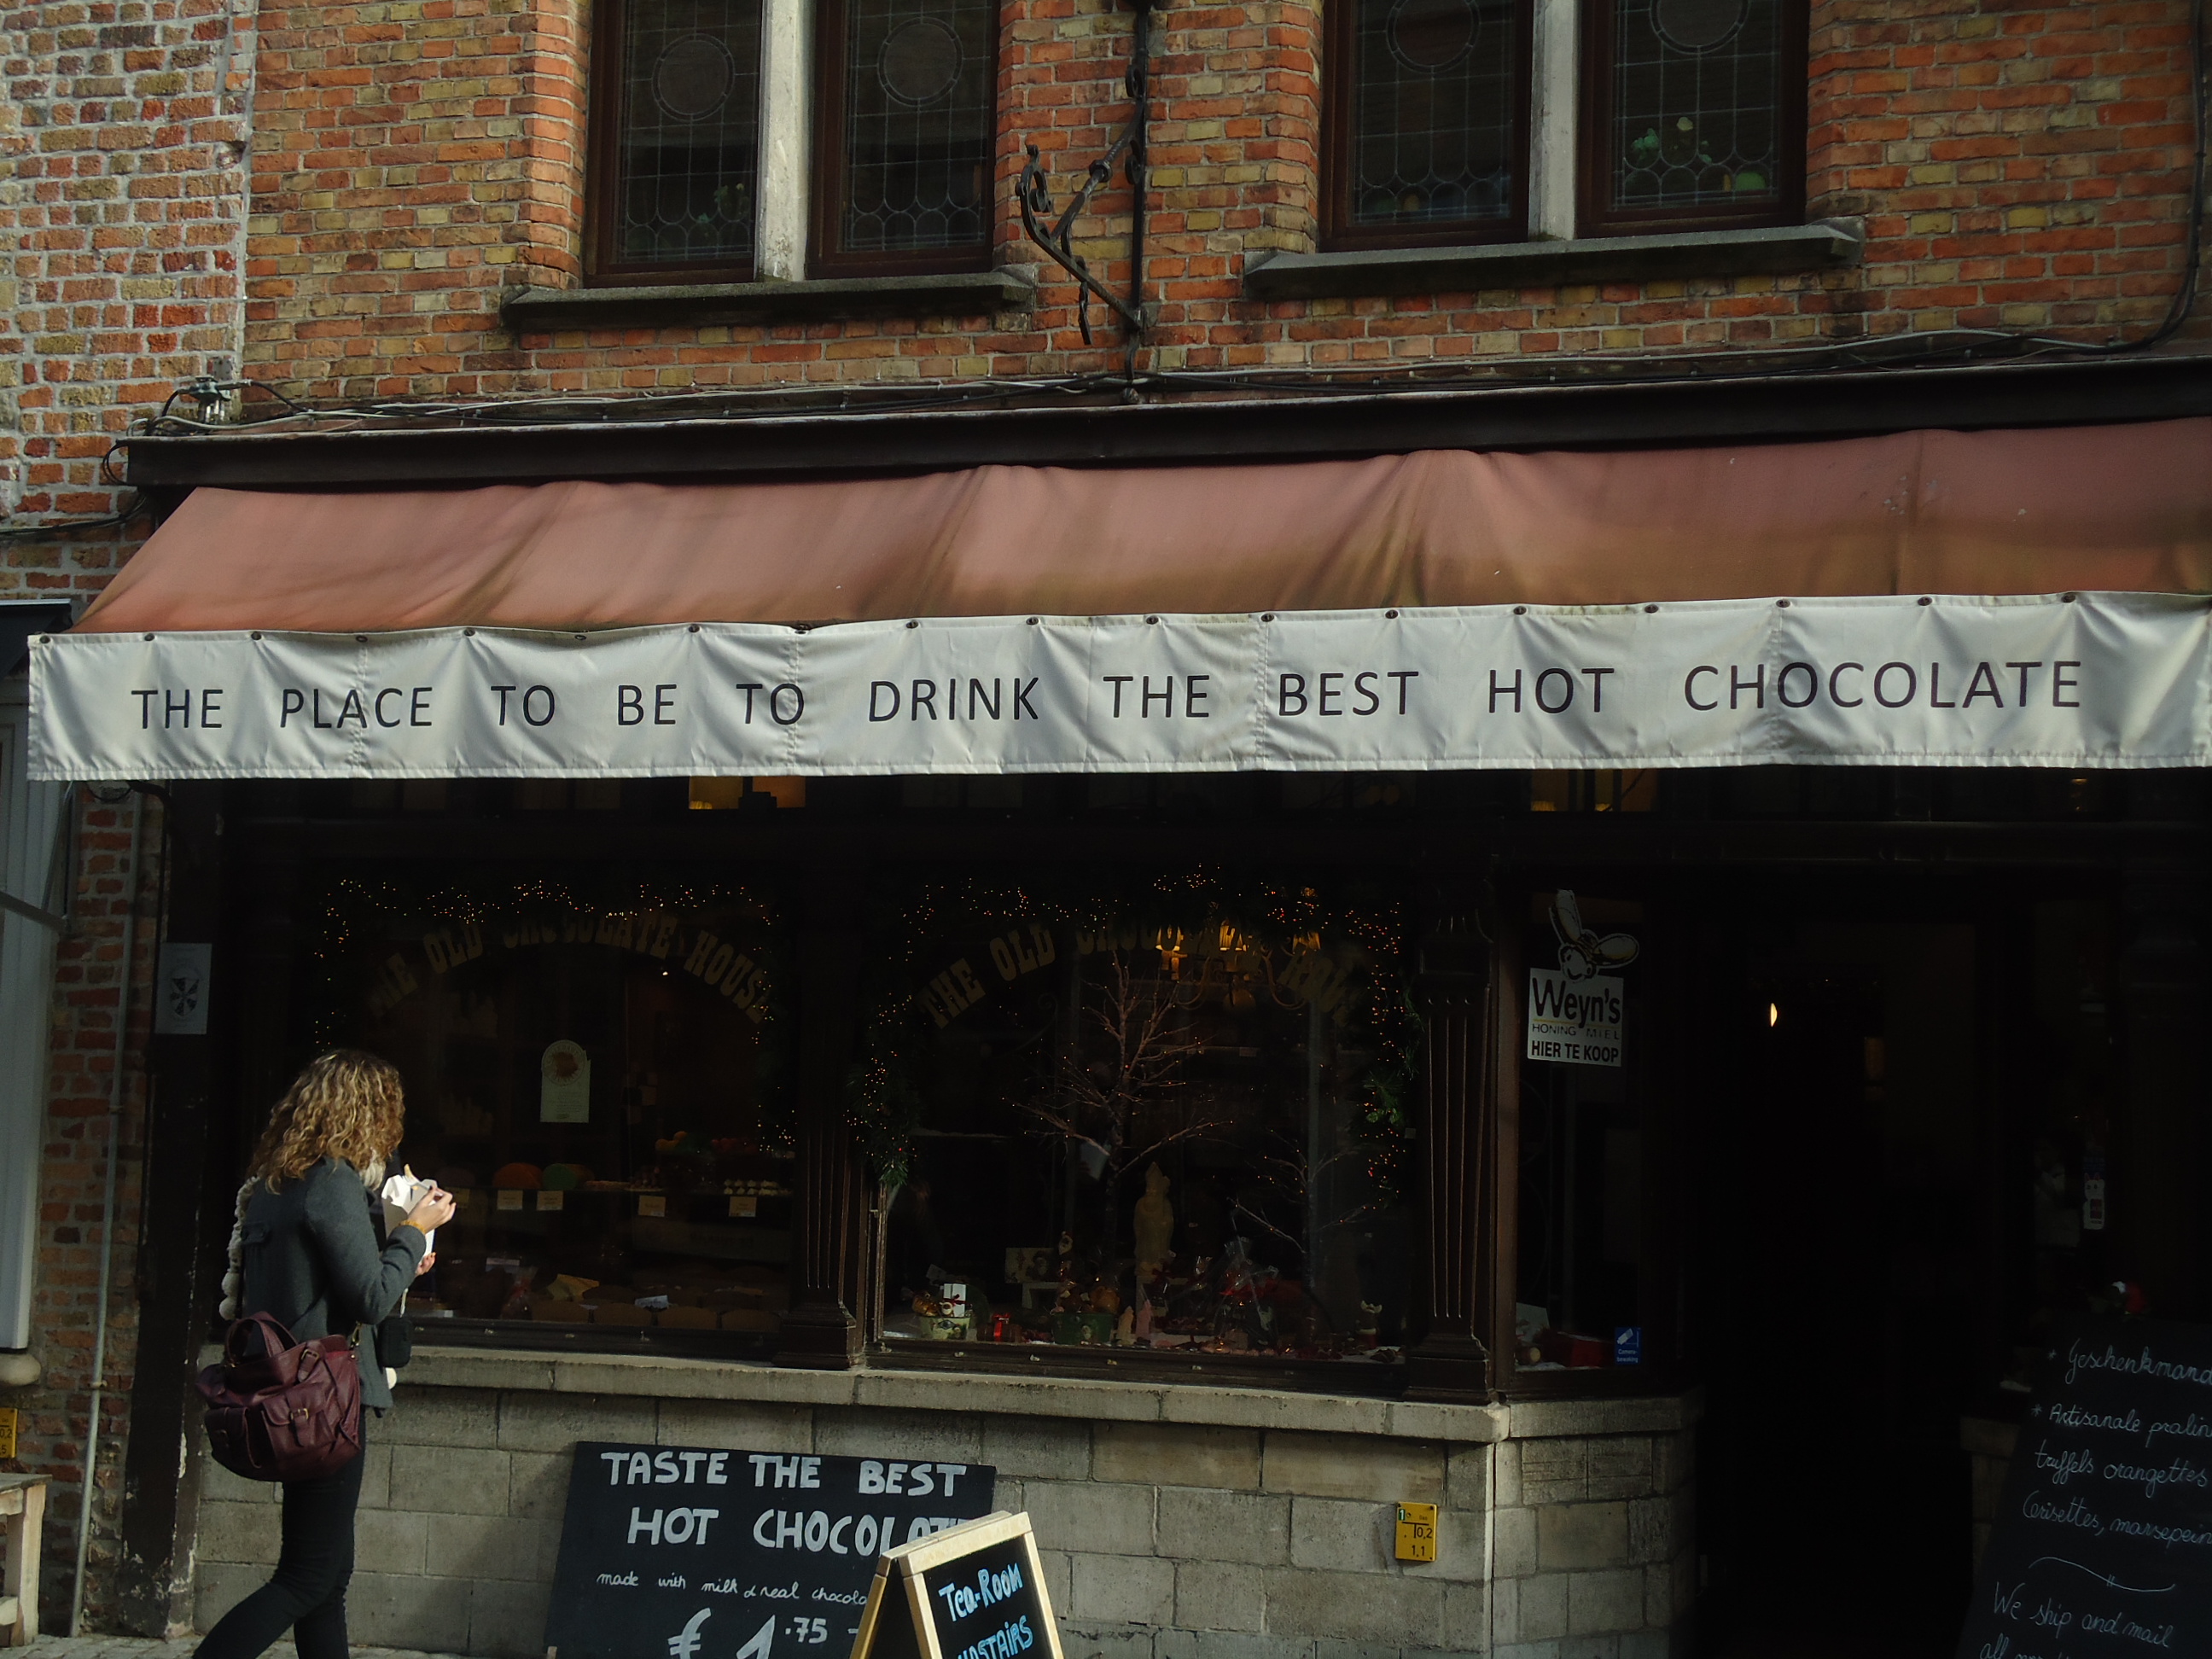 THE PLACE TO BE TO DRINK THE BEST HOT CHOCOLATE
THE OLD CHOCOLATE HOUSE
THE OLD CHOCOLATE HOUSE
Weyn's
HONING MIEL
HIER TE KOOP
TASTE THE BEST
HOT CHOCOLATE
made with milk & real chocola
€ 1.75
Tea-Room
UPSTAIRS
1
0,2
1,1
* Geschenkmand
* Artisanale pralin
truffels orangettes
Cerisettes, marsepein
We ship and mail
all